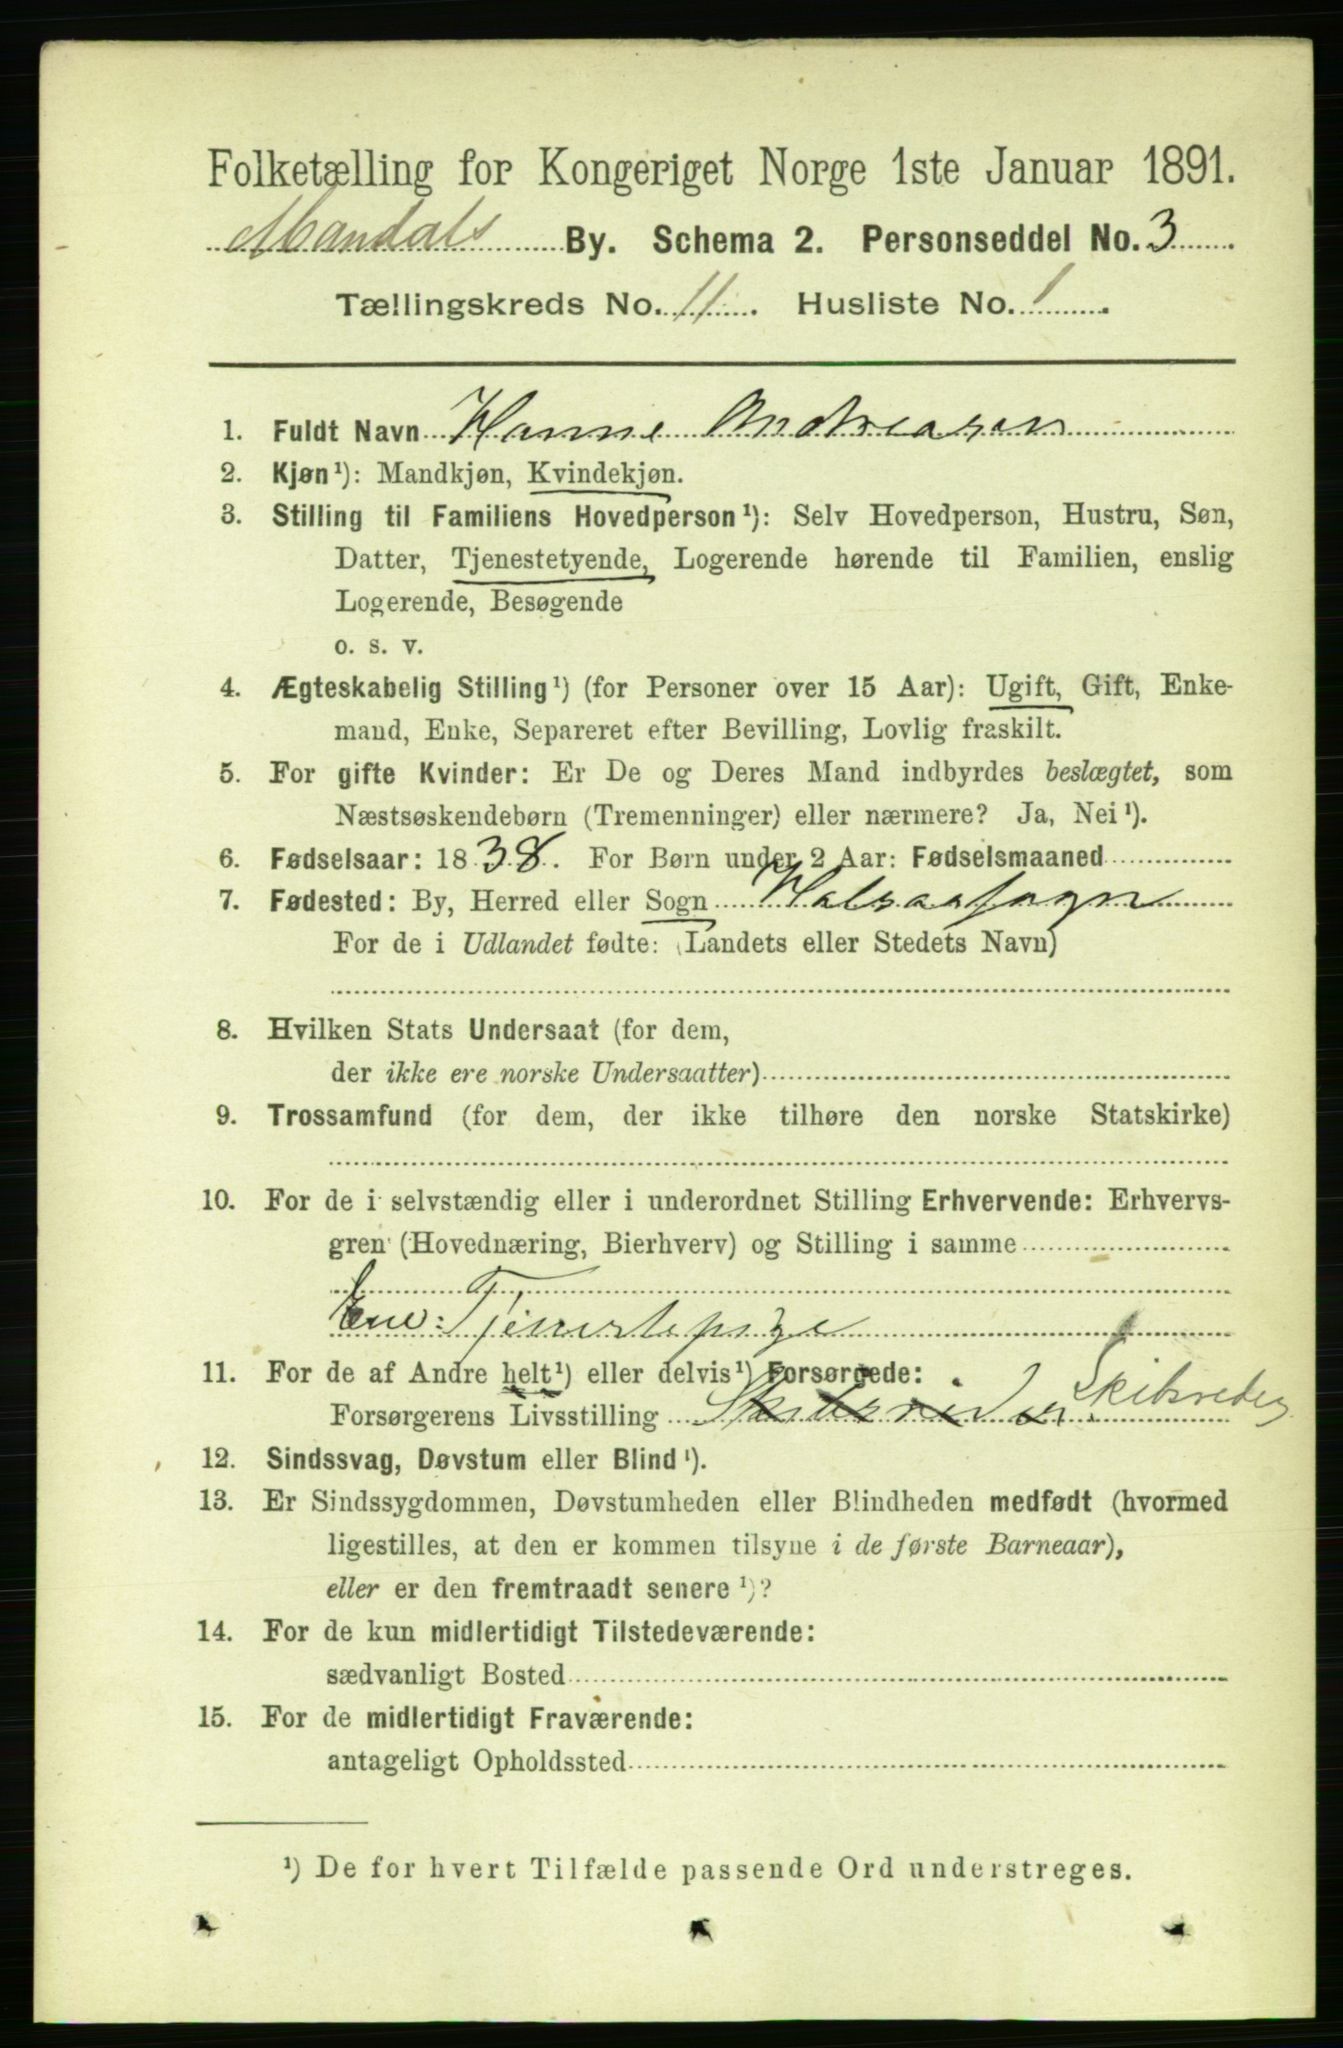 Folketælling for Kongeriget Norge 1ste Januar 1891.
Mandals By. Schema 2. Personseddel No. 3
Tællingskreds No. 11. Husliste No. 1.
1. Fuldt Navn Hanne Andreasen
2. Kjøn¹): Mandkjøn, Kvindekjøn.
3. Stilling til Familiens Hovedperson¹): Selv Hovedperson, Hustru, Søn,
Datter, Tjenestetyende, Logerende hørende til Familien, enslig
Logerende, Besøgende
o. s. v.
4. Ægteskabelig Stilling¹) (for Personer over 15 Aar): Ugift, Gift, Enke-
mand, Enke, Separeret efter Bevilling, Lovlig fraskilt.
5. For gifte Kvinder: Er De og Deres Mand indbyrdes beslægtet, som
Næstsøskendebørn (Tremenninger) eller nærmere? Ja, Nei¹).
6. Fødselsaar: 1838. For Børn under 2 Aar: Fødselsmaaned
7. Fødested: By, Herred eller Sogn Halsaa sogn
For de i Udlandet fødte: (Landets eller Stedets Navn)
8. Hvilken Stats Undersaat (for dem,
der ikke ere norske Undersaatter)
9. Trossamfund (for dem, der ikke tilhøre den norske Statskirke)
10. For de i selvstændig eller i underordnet Stilling Erhvervende: Erhvervs-
gren (Hovednæring, Bierhverv) og Stilling i samme
Tjenestepige
11. For de af Andre helt¹) eller delvis¹) Forsørgede:
Forsørgerens Livsstilling Skibsreder Skibsreder
12. Sindssvag, Døvstum eller Blind¹).
13. Er Sindssygdommen, Døvstumheden eller Blindheden medfødt (hvormed
ligestilles, at den er kommen tilsyne i de første Barneaar),
eller er den fremtraadt senere¹)?
14. For de kun midlertidigt Tilstedeværende:
sædvanligt Bosted
15. For de midlertidigt Fraværende:
antageligt Opholdssted
¹) De for hvert Tilfælde passende Ord understreges.